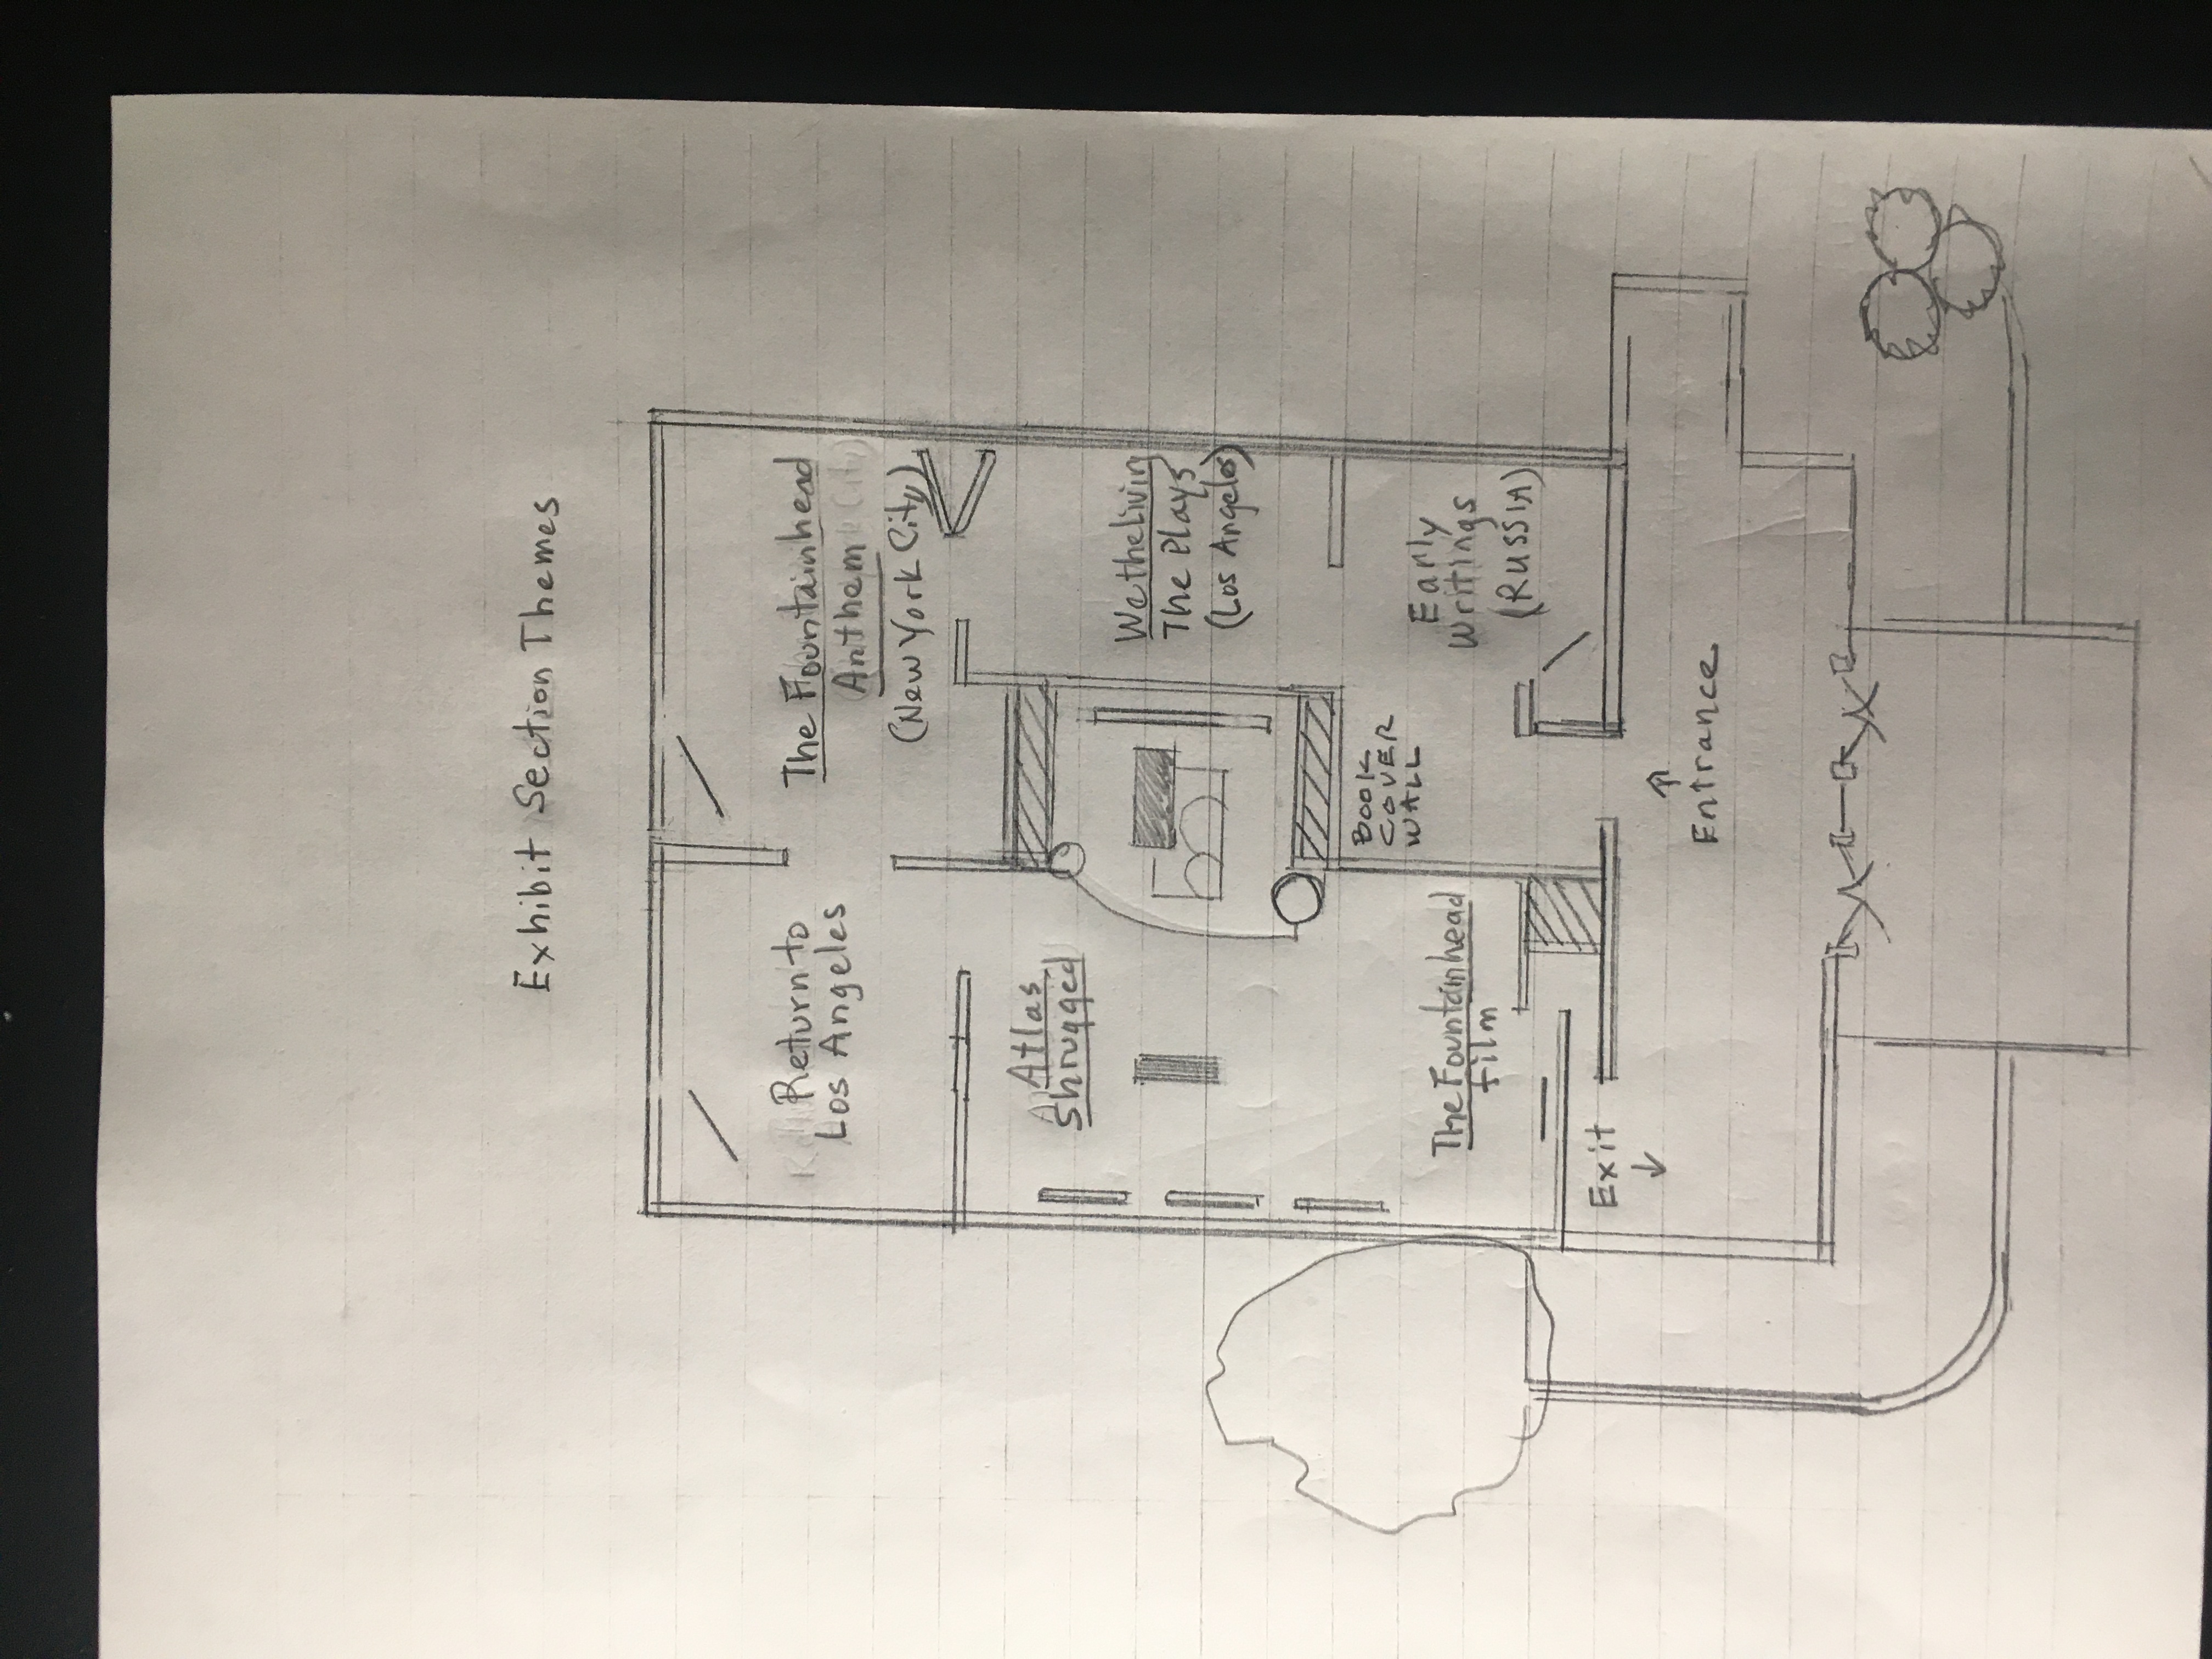 Exhibit Section Themes
Return to
Los Angeles
The Fountainhead
Anthem
(New York City)
Atlas
Shrugged
We the Livin
The Plays
(Los Angeles)
BOOK
COVER
WALL
Early
Writings
(RUSSIA)
The Fountainhead
film
Exit
Entrance